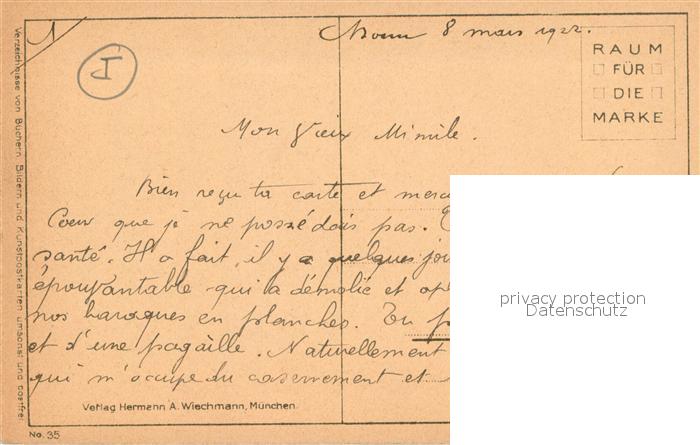 1
I
8 mars 1922.
RAUM
FÜR
DIE
MARKE
Mon Vieux Mimile.
Bien reçu ta carte et
Coeur que je ne possédais pas.
santé. Il a fait, il y a quelques
épouvantable qui l'a démolie et
nos baraques en planches. Tu
et d'une pagaille. Naturellement
qui m'occupe du casernement et
privacy protection
Datenschutz
Verlag Hermann A. Wiechmann, München.
No. 35
Verzeichnisse von Büchern, Bildern und Kunstpostkarten umsonst und postfrei